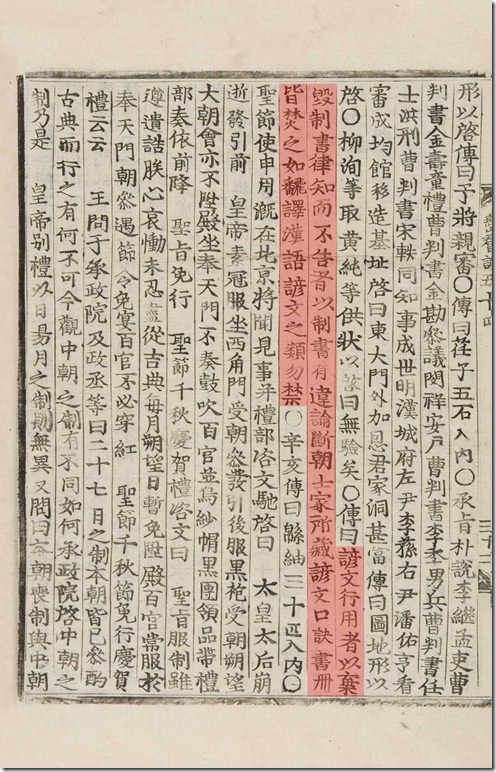 形以啓傳曰予將親審○傳曰荏子五石入內○承旨朴說李繼孟吏曹
判書金壽童禮曹判書金勘參議閔祥安戶曹判書李季男兵曹判書任
士洪刑曹判書宋軼同知事成世明漢城府左尹李蓀右尹潘佑亨看
審成均館移造基址啓曰東大門外加恩君家洞甚富傳曰圖地形以
啓○柳洵等取黃純等供狀以啓曰無驗矣○傳曰諺文行用者以棄
毀制書律知而不告者以制書有違論斷朝士家所藏諺文口訣書冊
皆焚之如飜譯漢語諺文之類勿禁○辛亥傳曰緜紬三十匹入內○
聖節使申用漑在北京將聞見事幷禮部咨文馳啓曰 太皇太后崩
逝發引前 皇帝素冠服坐西角門受朝參發引後服黑袍受朝朔望
大朝會亦不陞殿坐奉天門不奏鼓吹百官並烏紗帽黑團領品帶禮
部奏依前降 聖旨免行 聖節千秋慶賀禮咨文曰 聖旨服制雖
遵遺誥朕心哀慟未忍盡從吉典每月朔望日暫免陞殿百官常服於
奉天門朝參遇節令免宴百官不必穿紅 聖節千秋節免行慶賀
禮云云 王問于承政院及政丞等曰二十七月之制本朝皆已參酌
古典而行之有何不可今觀中朝之制有不同如何承政院啓中朝之
制乃是 皇帝別禮以日易月之制則無異又問曰本朝喪制與中朝